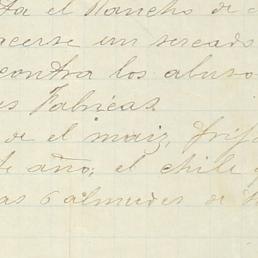 ta el Rancho de
acerse un sercado
contra los abuso
us Fabricas
de el maiz, frijo
te año; el chile
as 6 almudes de